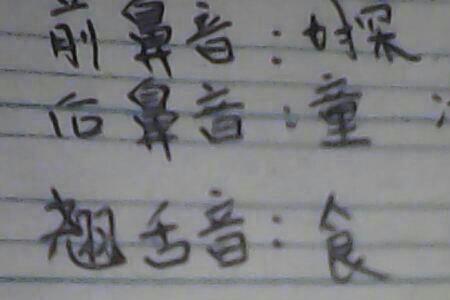 前鼻音：
后鼻音：童；
翘舌音：食